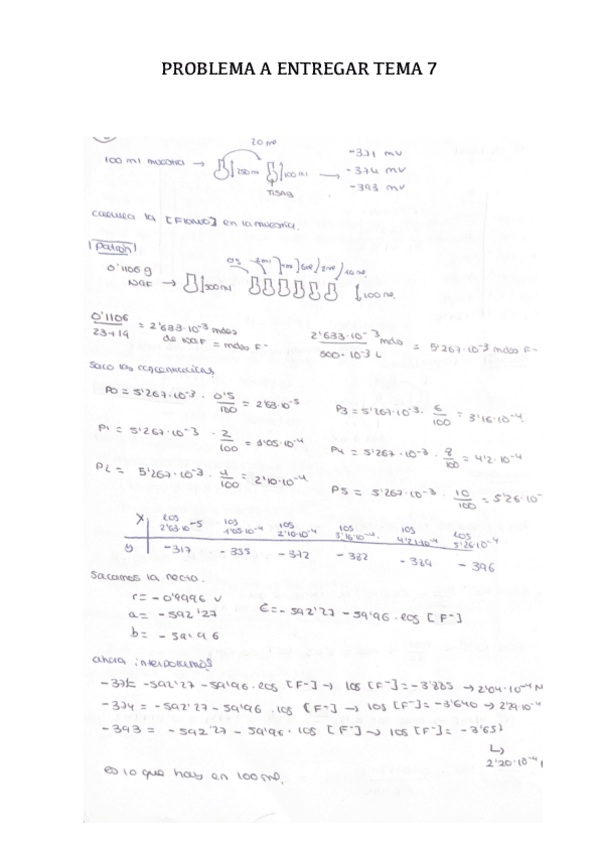 PROBLEMA A ENTREGAR TEMA 7
20 ml
100 ml muestra → 250 ml 100 ml → -371 mV
-374 mV
TISAB -393 mV
Calcula la [Flúor] en la muestra.
Patrón
0'1106 g
NaF → 500 ml 100 ml.
0'1106 / 23+19 = 2'633·10⁻³ moles
de NaF = moles F⁻
2'633·10⁻³ moles / 500·10⁻³ L = 5'267·10⁻³ moles F⁻
Saco las concentraciones
P0 = 5'267·10⁻³ · 0'5/100 = 2'63·10⁻⁵
P1 = 5'267·10⁻³ · 2/100 = 1'05·10⁻⁴
P2 = 5'267·10⁻³ · 4/100 = 2'10·10⁻⁴
P3 = 5'267·10⁻³ · 6/100 = 3'16·10⁻⁴
P4 = 5'267·10⁻³ · 8/100 = 4'2·10⁻⁴
P5 = 5'267·10⁻³ · 10/100 = 5'26·10⁻
X log 2'63·10⁻⁵ log 1'05·10⁻⁴ log 2'10·10⁻⁴ log 3'16·10⁻⁴ log 4'21·10⁻⁴ log 5'26·10⁻⁴
y -317 -355 -372 -382 -389 -396
Sacamos la recta.
r = -0'9996
a = -592'27
b = -59'96
E = -592'27 - 59'96·log [F⁻]
ahora interpolamos
= -592'27 - 59'96·log [F⁻] → log [F⁻] = → 2'04·10⁻⁴ M
-374 = -592'27 - 59'96·log [F⁻] → log [F⁻] = -3'640 → 2'29·10⁻⁴
-393 = -592'27 - 59'96·log [F⁻] → log [F⁻] = -3'65
↳ 2'20·10⁻⁴
es lo que hay en 100 ml.